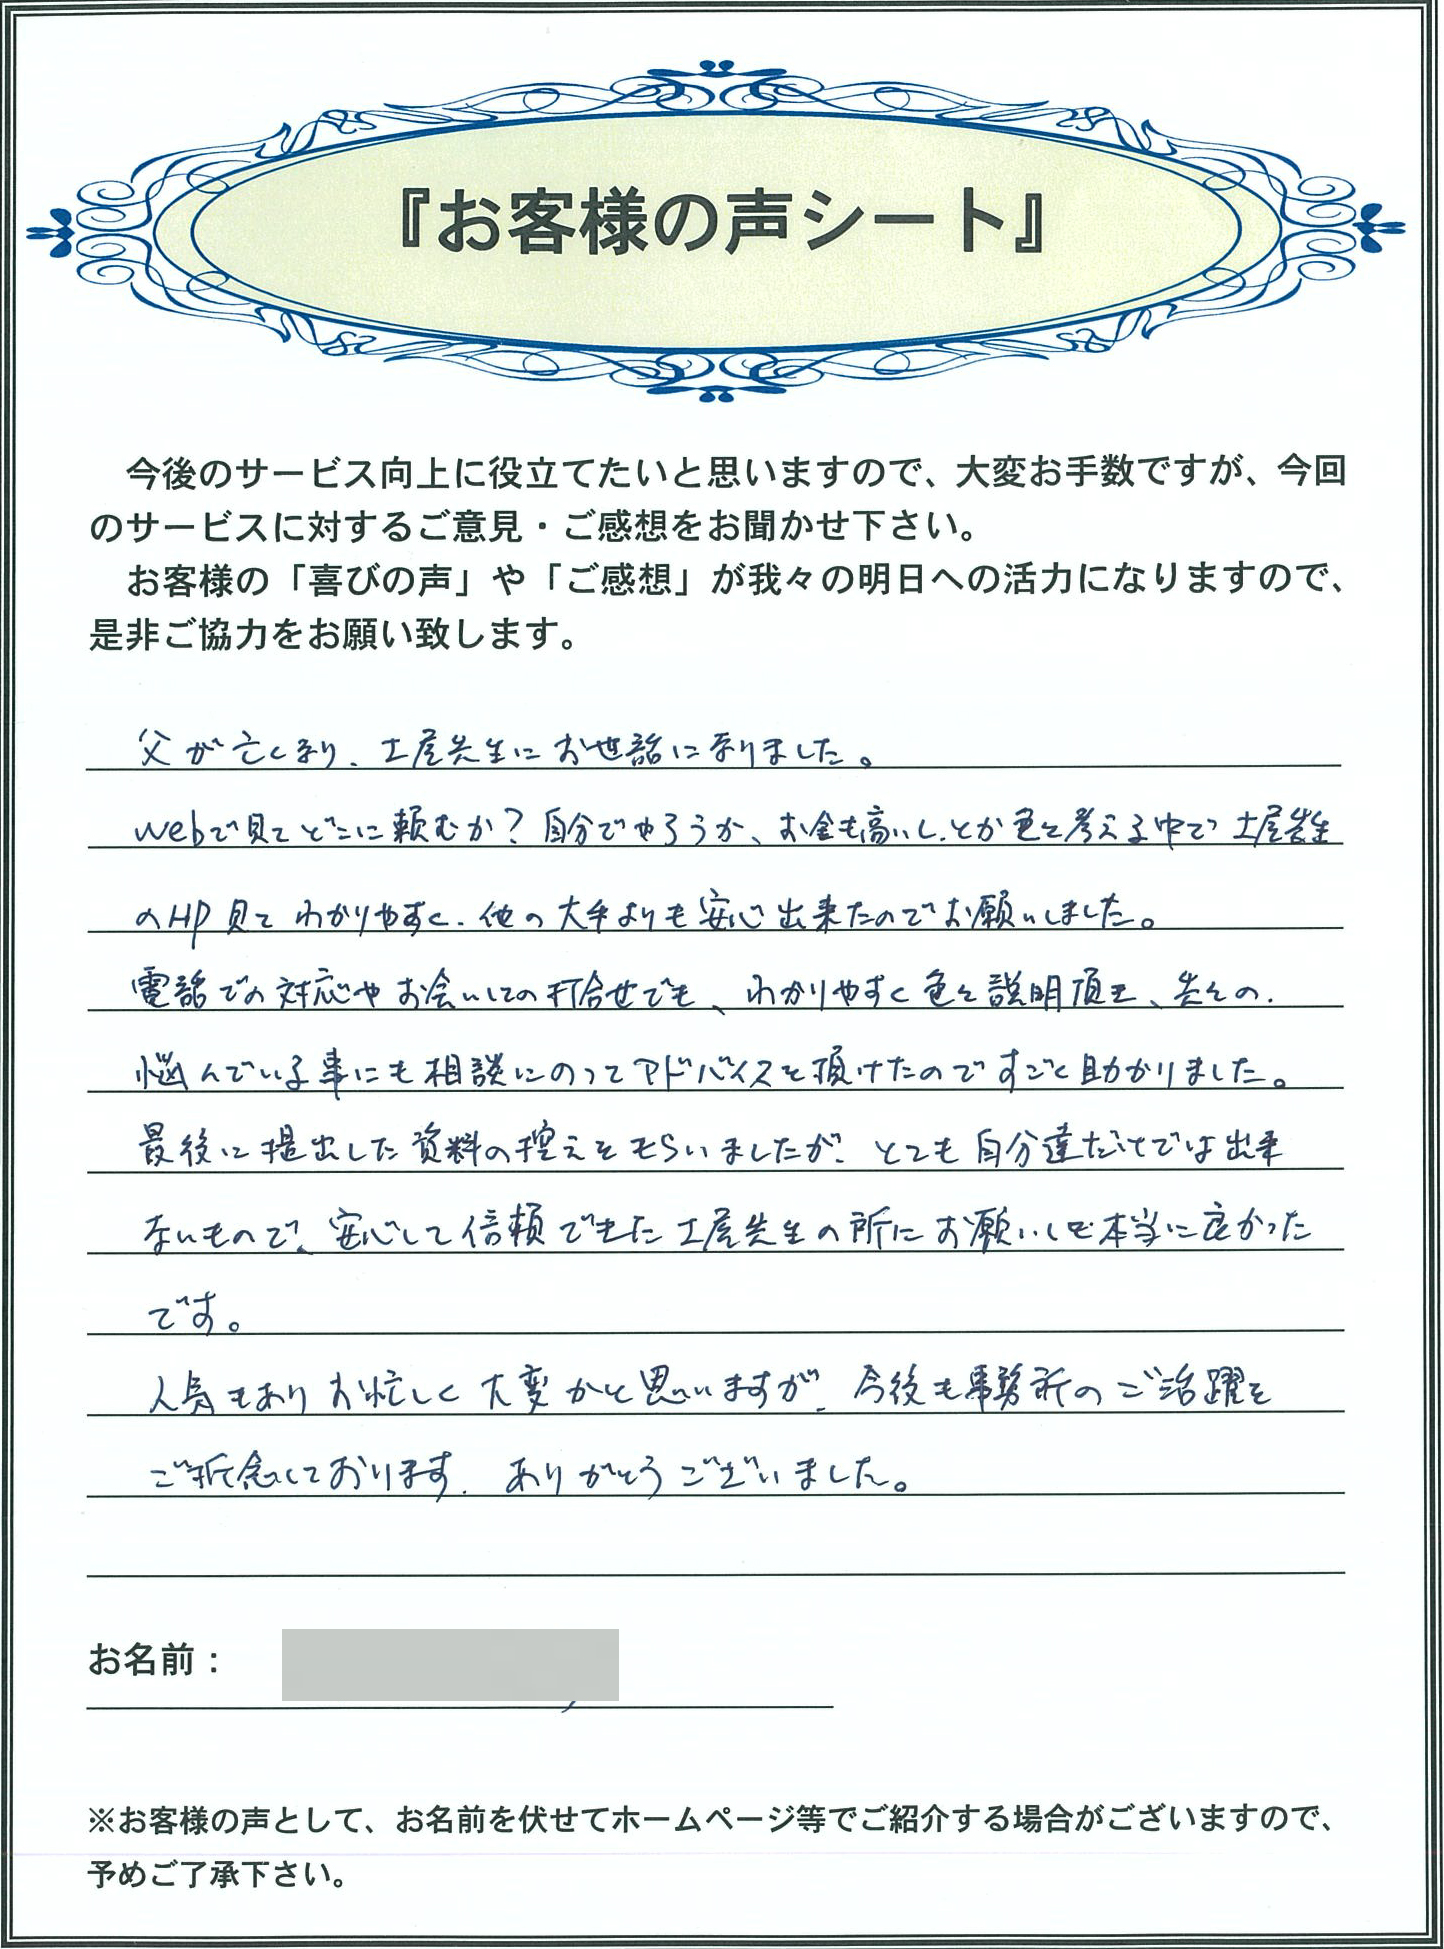 『お客様の声シート』
今後のサービス向上に役立てたいと思いますので、大変お手数ですが、今回
のサービスに対するご意見・ご感想をお聞かせ下さい。
お客様の「喜びの声」や「ご感想」が我々の明日への活力になりますので、
是非ご協力をお願い致します。
父が亡くなり、土屋先生にお世話になりました。
webで見てどこに頼むか？自分でやろうか、お金も高いし、とか色々考える中で土屋先生
のHP見てわかりやすく、他の大手よりも安心出来たのでお願いしました。
電話での対応やお会いしての打合せでも、わかりやすく色々説明頂き、先々の
悩んでいる事にも相談にのってアドバイスを頂けたのですごく助かりました。
最後に提出した資料の控えをもらいましたが、とても自分達だけでは出来
ないもので、安心して信頼できた土屋先生の所にお願いして本当に良かった
です。
人気もありお忙しく大変かと思いますが、今後も事務所のご活躍を
ご祈念しております。ありがとうございました。
お名前：
※お客様の声として、お名前を伏せてホームページ等でご紹介する場合がございますので、
予めご了承下さい。